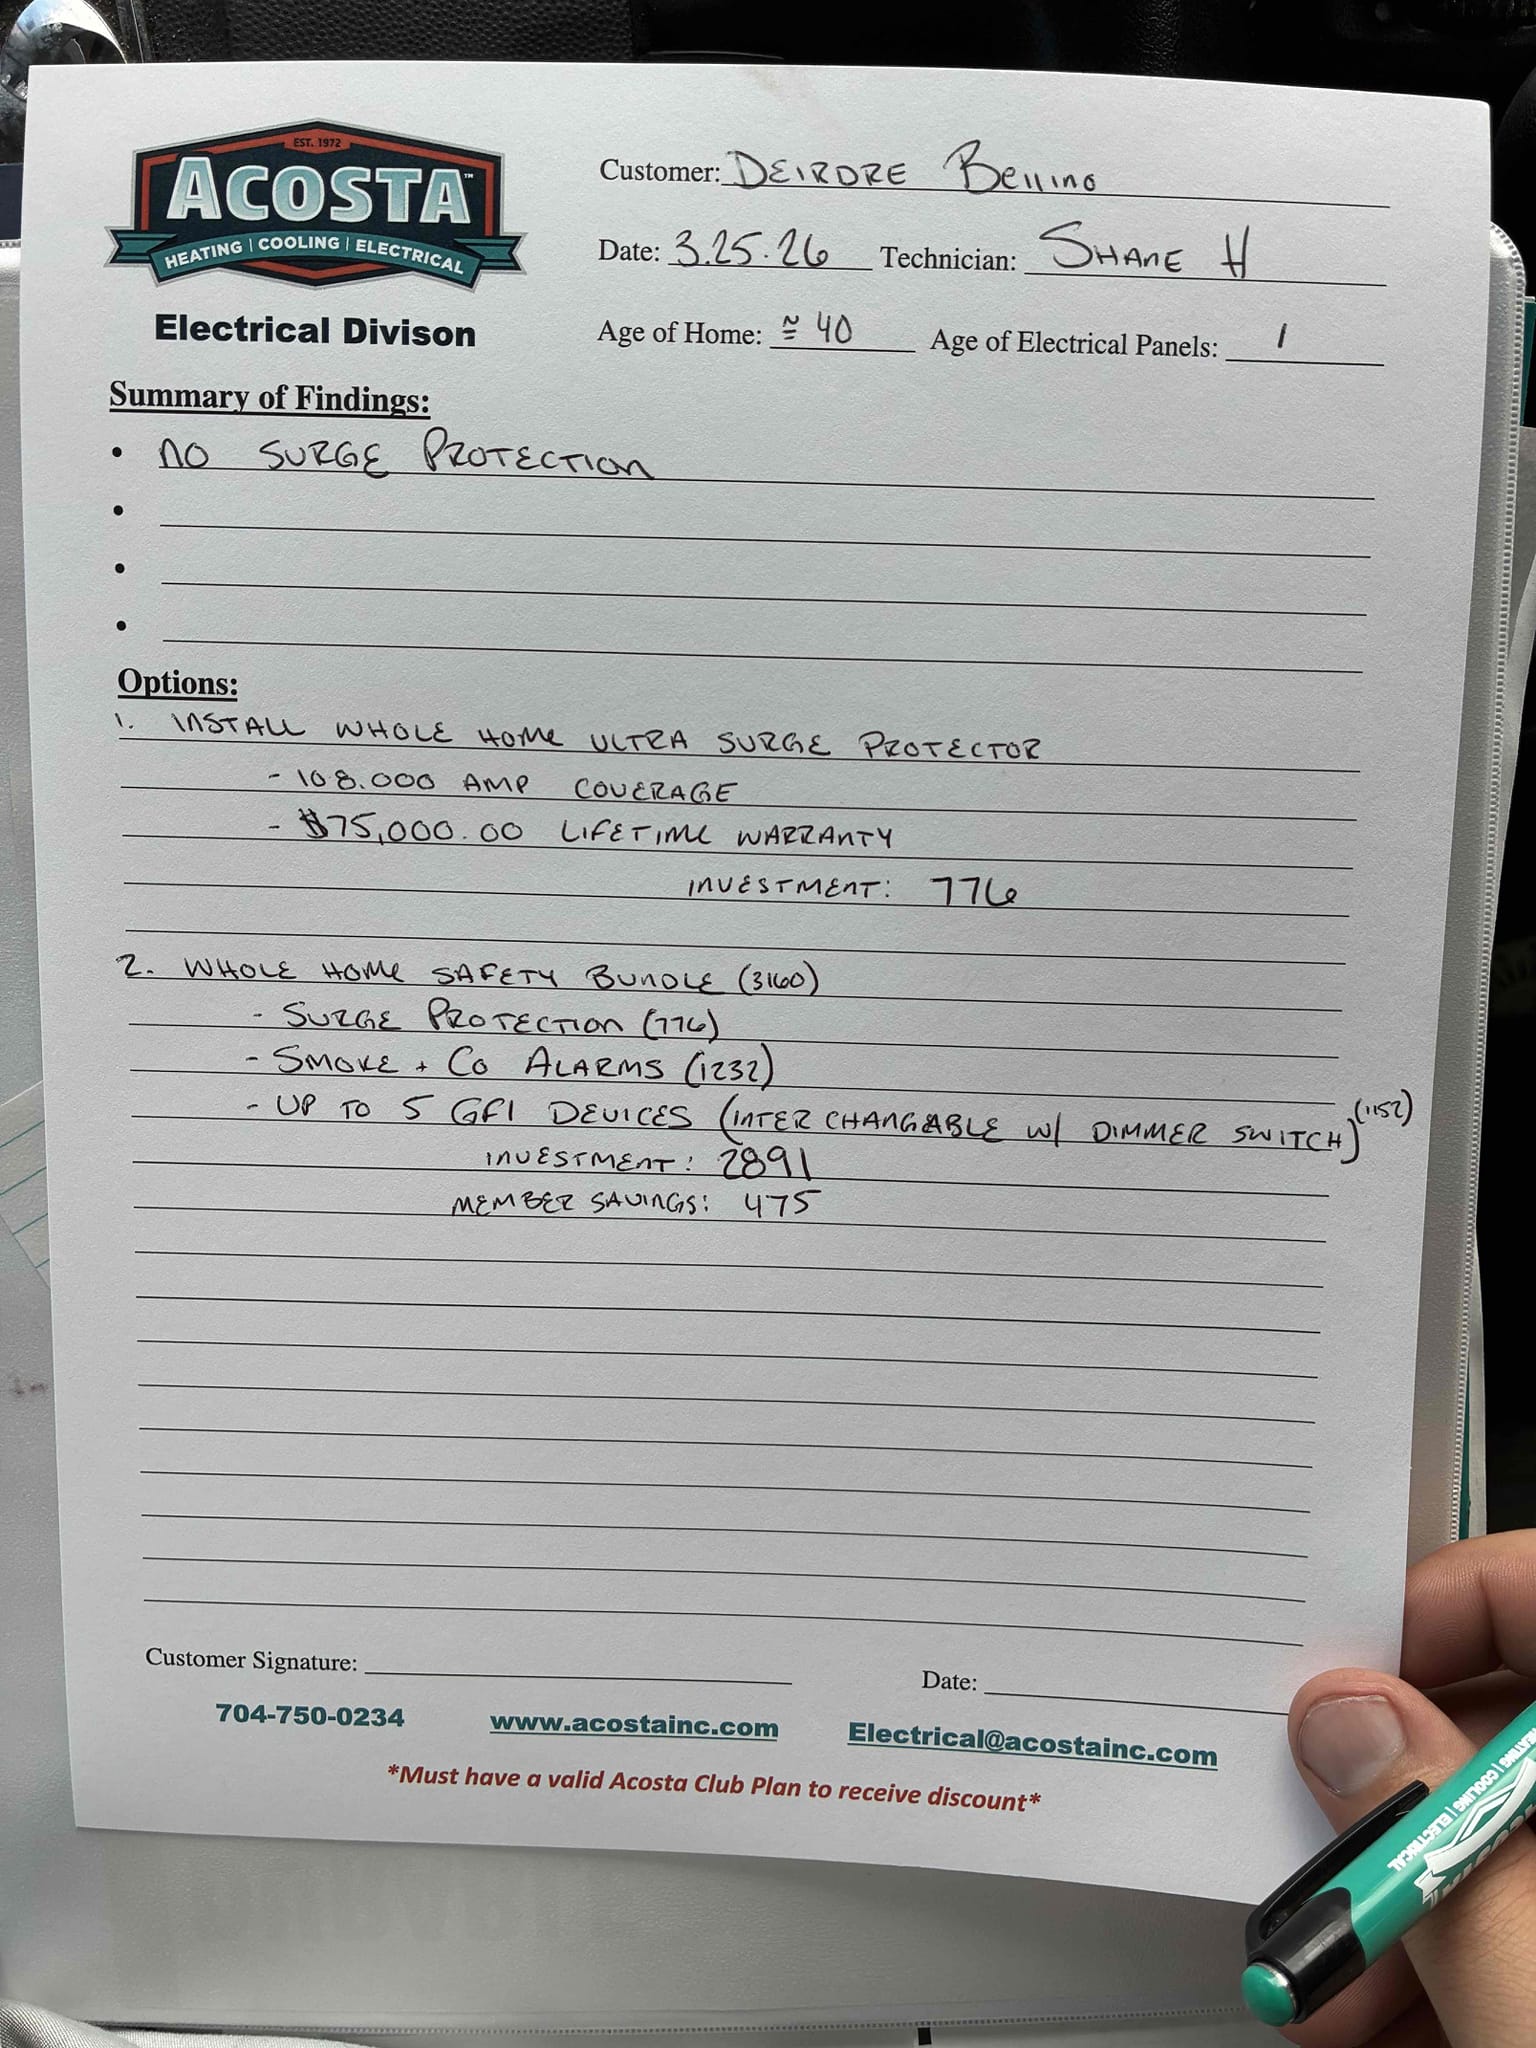 EST. 1972
ACOSTA™
HEATING | COOLING | ELECTRICAL
Electrical Divison
Customer: DEIRDRE Bellino
Date: 3.25.26 Technician: SHANE H
Age of Home: ≅ 40 Age of Electrical Panels: 1
Summary of Findings:
• NO SURGE PROTECTION
•
•
•
Options:
1. INSTALL WHOLE HOME ULTRA SURGE PROTECTOR
- 108.000 AMP COVERAGE
- $75,000.00 LIFETIME WARRANTY
INVESTMENT: 776
2. WHOLE HOME SAFETY BUNDLE (3160)
- SURGE PROTECTION (776)
- SMOKE + CO ALARMS (1232)
- UP TO 5 GFI DEVICES (INTERCHANGABLE W/ DIMMER SWITCH) (1152)
INVESTMENT: 2891
MEMBER SAVINGS: 475
Customer Signature:
Date:
704-750-0234 www.acostainc.com Electrical@acostainc.com
*Must have a valid Acosta Club Plan to receive discount*
HEATING | COOLING | ELECTRICAL